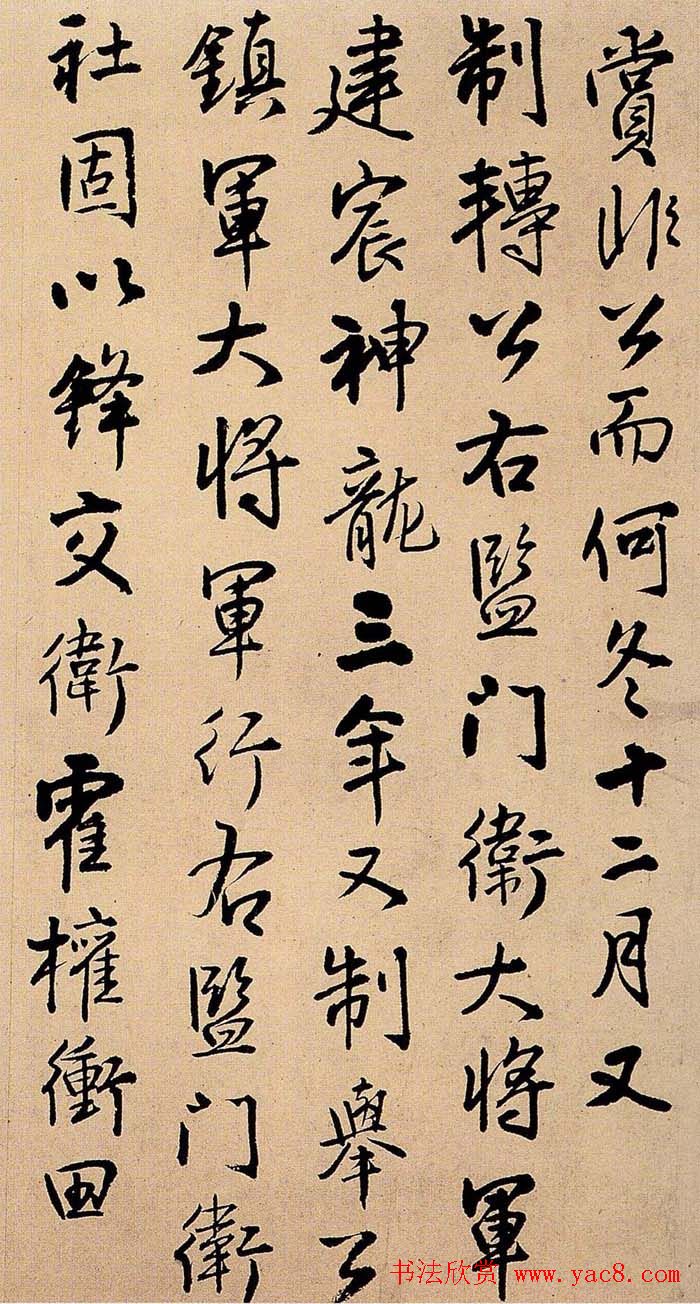 賞非公而何冬十二月又
制轉公右監门衛大将軍
建宸神龍三年又制舉公
鎮軍大将軍行右監门衛
社固以鋒交衛霍權衝田
书法欣赏 www.yac8.com